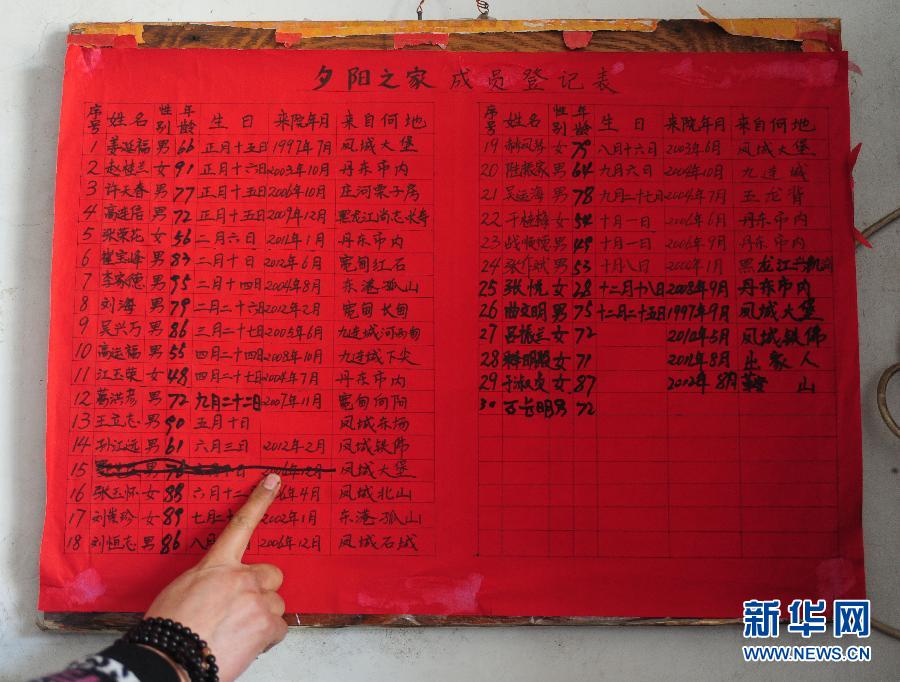 夕阳之家成员登记表
序号 姓名 性别 年龄 生日 来院年月 来自何地
1 姜延福 男 66 正月十五日 1997年7月 凤城大堡
2 赵桂兰 女 91 正月十六日 2003年10月 丹东市内
3 许天春 男 77 正月十五日 2006年10月 庄河栗子房
4 高连居 男 72 正月十五日 2009年12月 黑龙江尚志
5 张荣花 女 56 二月六日 2011年1月 丹东市内
6 崔宝峰 男 83 二月十日 2012年6月 宽甸红石
7 李家德 男 95 二月十四日 2004年8月 东港孤山
8 刘海 男 79 二月二十六 2012年2月 宽甸长甸
9 吴兴万 男 86 三月二十七日 2005年6月 九连城河西甸
10 高运福 男 55 四月二十四日 2008年10月 九连城下尖
11 江玉荣 女 48 四月二十七日 2004年7月 丹东市内
12 葛洪彦 男 72 九月二十二日 2007年11月 宽甸向阳
13 王立志 男 90 五月十日 凤城东汤
14 孙江远 男 61 六月三日 2012年2月 凤城铁佛
15 男 2006年12月 凤城大堡
16 张玉怀 女 88 六月十二 年4月 凤城北山
17 刘 珍 女 89 七月二 2002年1月 东港孤山
18 刘恒志 男 86 八月 2006年12月 凤城石城
序号 姓名 性别 年龄 生日 来院年月 来自何地
19 郝凤芬 女 79 八月十六日 2003年6月 凤城大堡
20 家 男 64 九月六日 2004年10月 九连城
21 吴运海 男 78 九月二十七日 2004年7月 五龙背
22 于桂梅 女 54 十月一日 2006年6月 丹东市内
23 战顺德 男 49 十月一日 2006年9月 丹东市内
24 张作斌 男 53 十月八日 1月 黑龙江
25 张悦 女 28 十二月十八日 2008年9月 丹东市内
26 曲文明 男 75 十二月二十五日 1997年9月 凤城大堡
27 吕振兰 女 72 2012年5月 凤城铁佛
28 释明 女 71 2012年8月 出家人
29 于淑贞 女 87 2012年8月 山
30 明 男 72
新华网
WWW.NEWS.CN